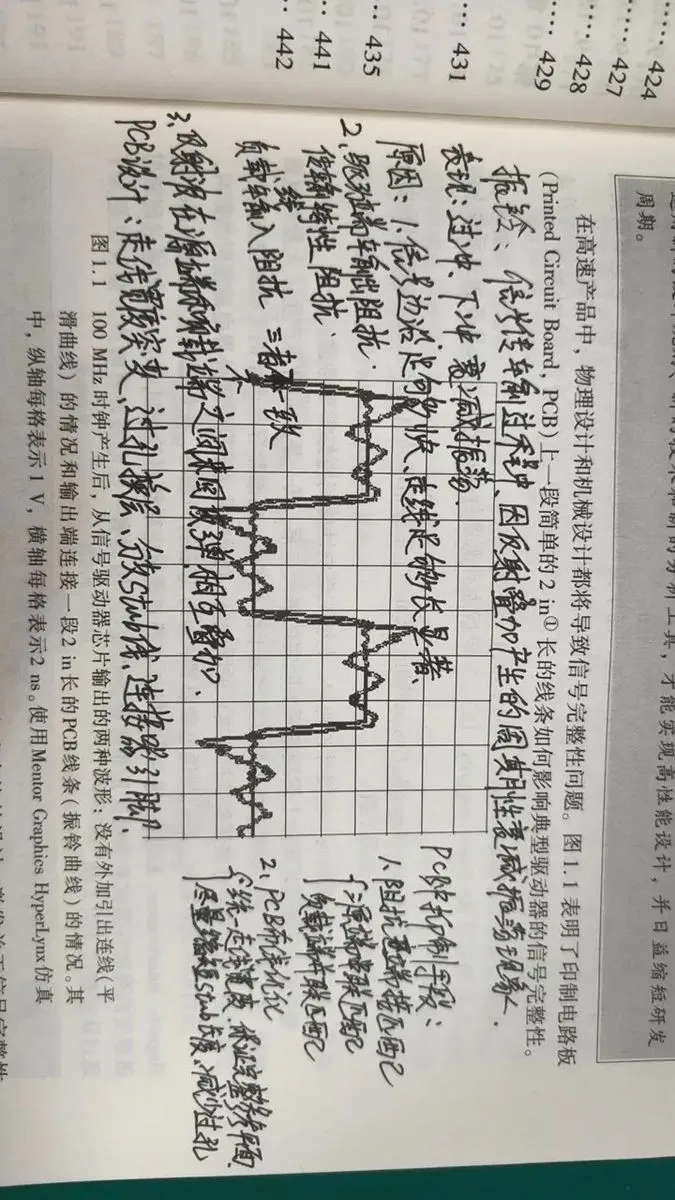 424
427
428
429
431
435
441
442
周期。
工具，才能实现高性能设计，并日益缩短研发
在高速产品中，物理设计和机械设计都将导致信号完整性问题。图1.1 表明了印制电路板
(Printed Circuit Board，PCB)上一段简单的2 in①长的线条如何影响典型驱动器的信号完整性。
振铃：信号传输过程中，因反射叠加产生的周期性衰减振荡现象.
表现：过冲、下冲 衰减振荡.
原因：1.信号边沿足够快、走线足够长 显著.
2.驱动端车输出阻抗.
传输线特性阻抗.
负载车输入阻抗 三者不一致
3.反射波在源端和负载端之间来回反弹,相互叠加.
PCB设计：走线宽度突变、过孔换层、分支stub线、连接器引脚.
PCB中抑制手段：
1.阻抗 端接匹配
源端串联匹配
负载端并联匹配
2.PCB布线优化
统一走线宽度、保证完整参考平面
尽量缩短stub长度、减少过孔
图1.1 100 MHz时钟产生后，从信号驱动器芯片输出的两种波形：没有外加引出连线(平
滑曲线)的情况和输出端连接一段2 in长的PCB线条(振铃曲线)的情况。其
中，纵轴每格表示1 V，横轴每格表示2 ns。使用Mentor Graphics HyperLynx仿真